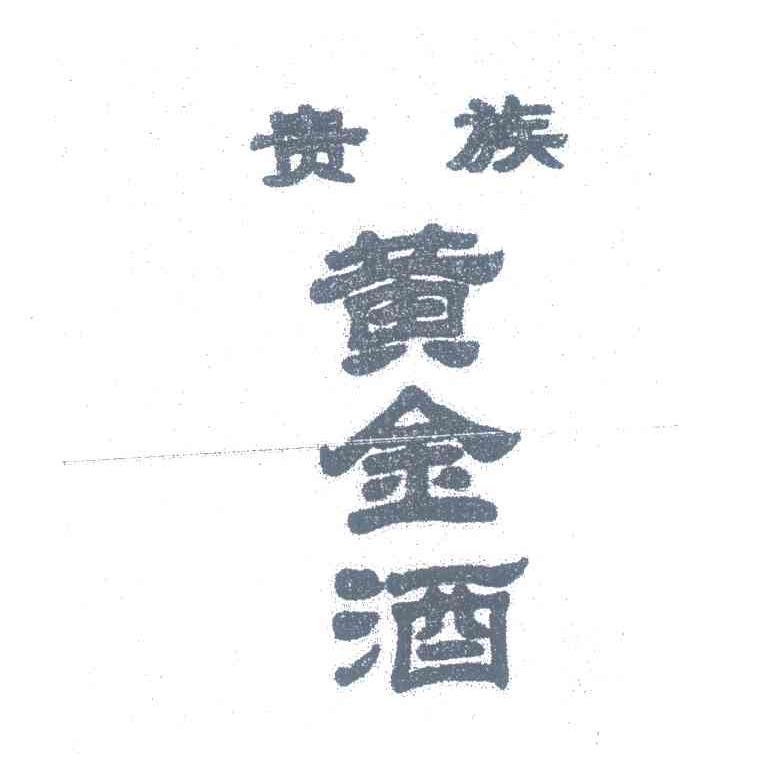 贵族
黄金酒